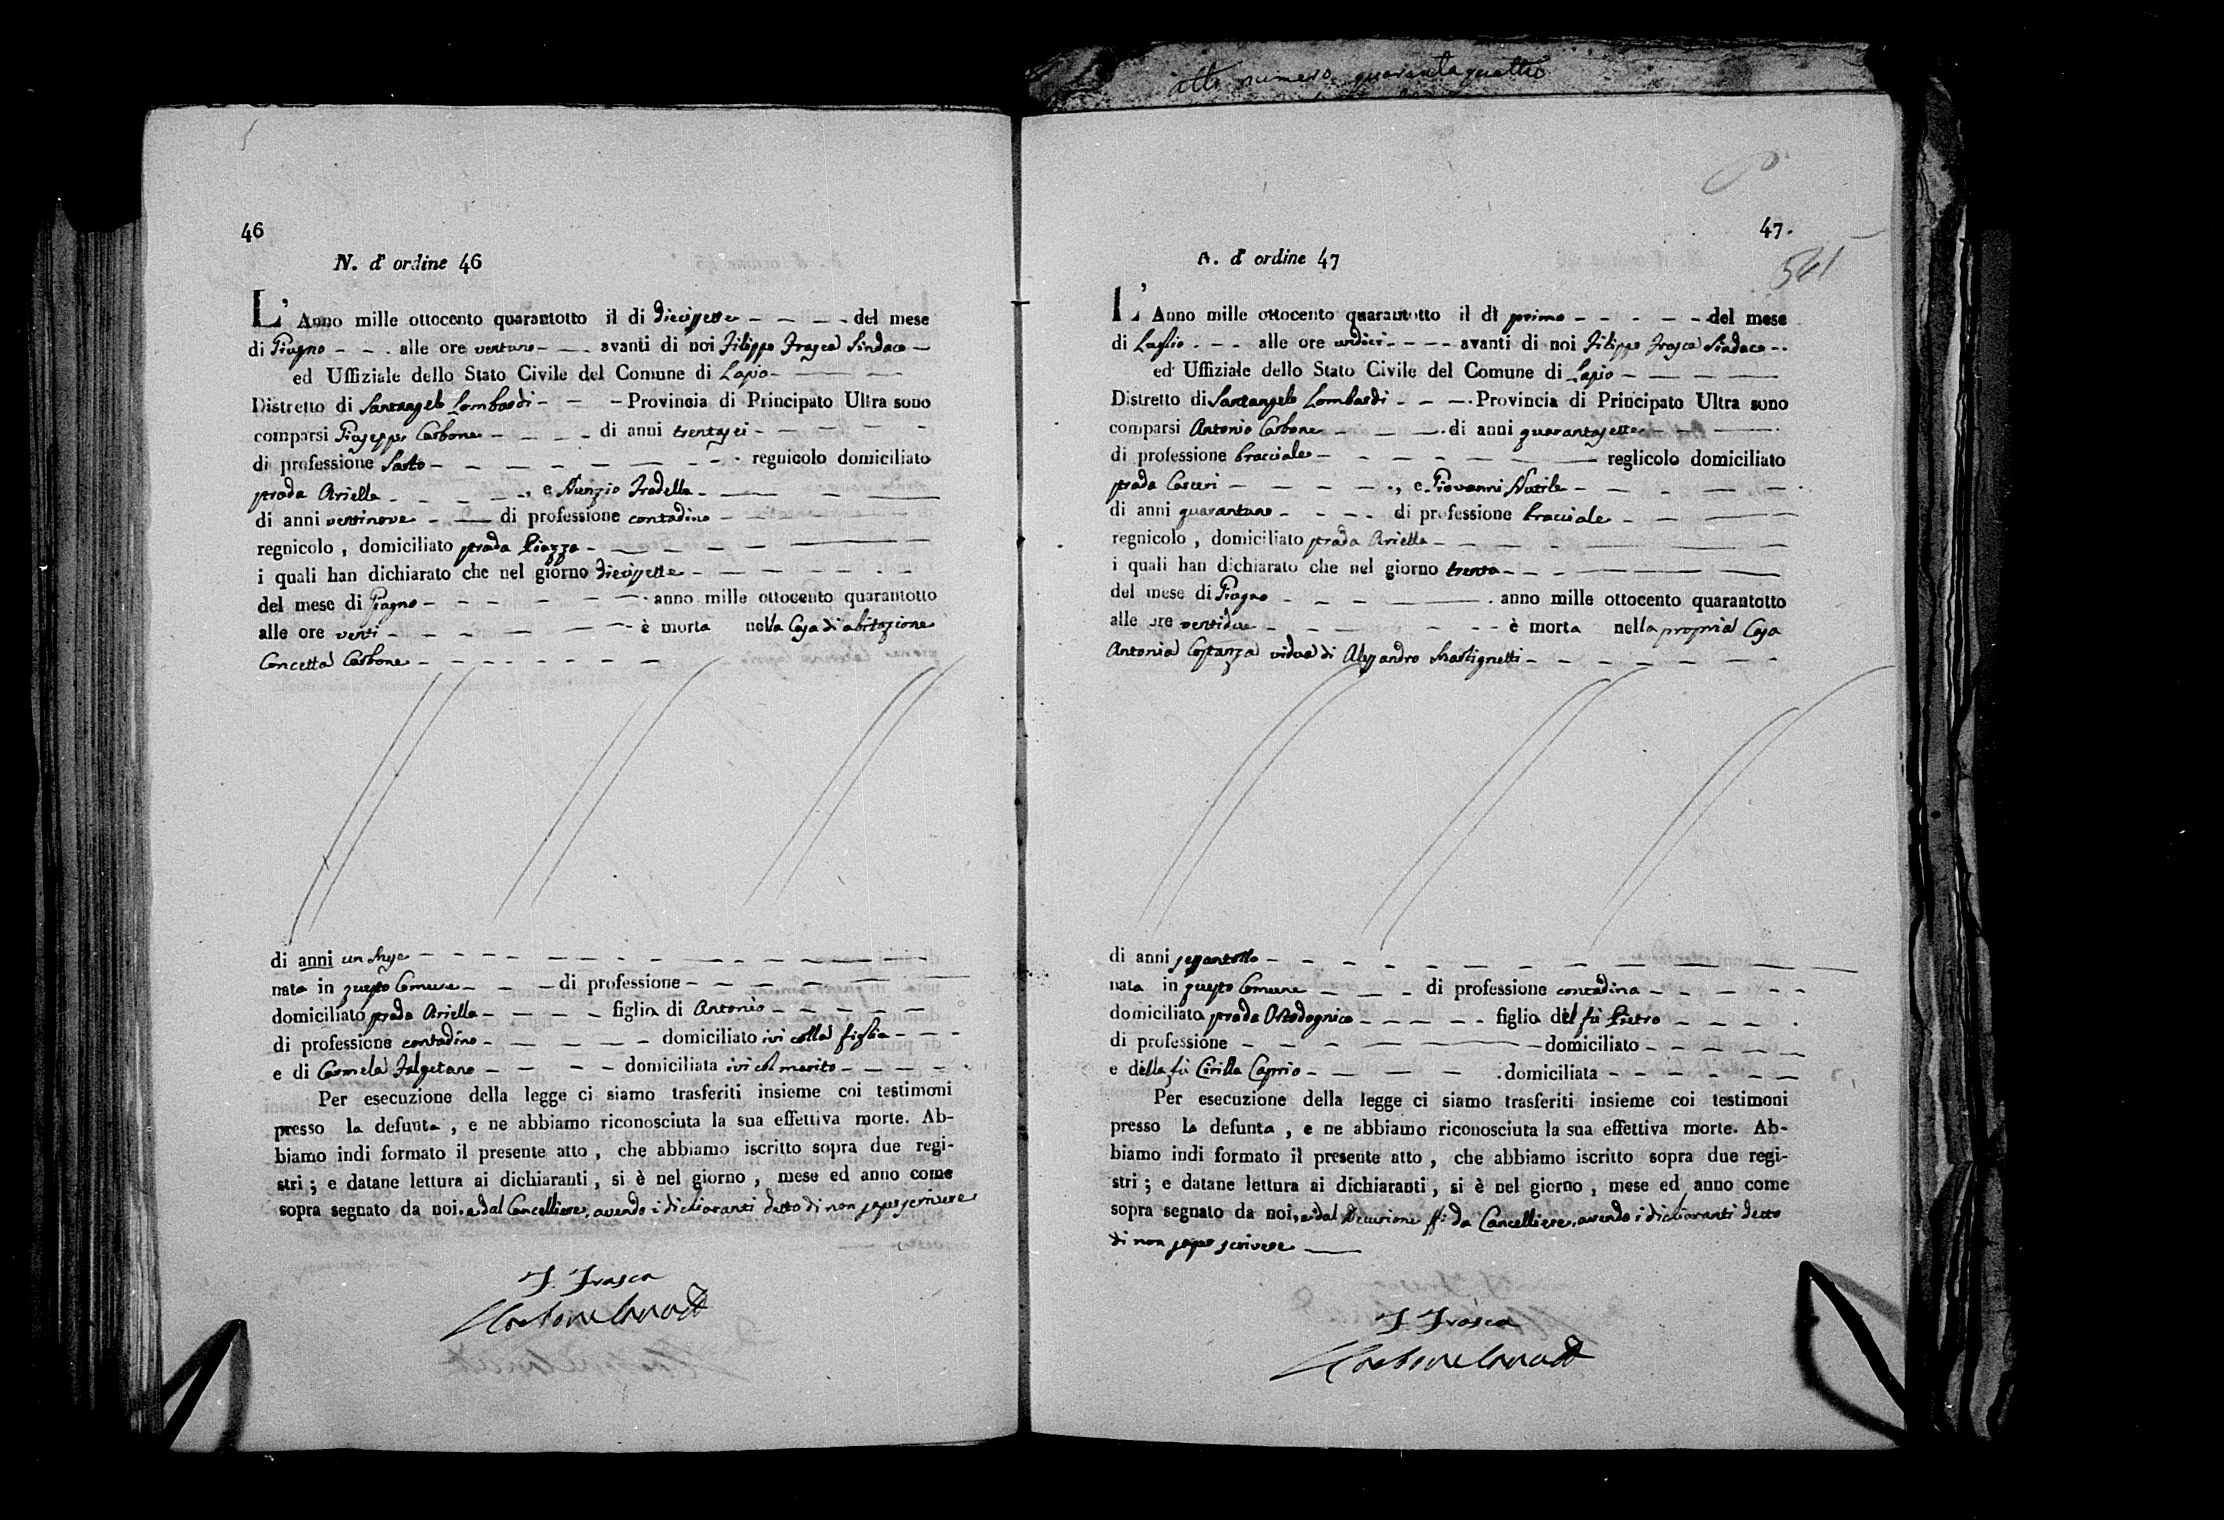 atto numero quarantaquattro
46
N. d' ordine 46
L' Anno mille ottocento quarantotto il di diecissette del mese
di Giugno alle ore ventuno avanti di noi Filippo Frasca Sindaco
ed Uffiziale dello Stato Civile del Comune di Lapio
Distretto di Santangelo Lombardi Provincia di Principato Ultra sono
comparsi Giuseppe Carbone di anni trentasei
di professione Sarto regnicolo domiciliato
strada Ariella , e Nunzio Fradella
di anni ventinove di professione contadino
regnicolo , domiciliato strada Piazza
i quali han dichiarato che nel giorno diecissette
del mese di Giugno anno mille ottocento quarantotto
alle ore venti è morta nella Casa di abitazione
Concetta Carbone
di anni un
nata in questo Comune di professione
domiciliato strada Ariella figlia di Antonio
di professione contadino domiciliato ivi colla figlia
e di Carmela domiciliata ivi col marito
Per esecuzione della legge ci siamo trasferiti insieme coi testimoni
presso la defunta , e ne abbiamo riconosciuta la sua effettiva morte. Ab-
biamo indi formato il presente atto , che abbiamo iscritto sopra due regi-
stri ; e datane lettura ai dichiaranti , si è nel giorno , mese ed anno come
sopra segnato da noi, e dal Cancelliere, avendo i dichiaranti detto di non saper scrivere
F. Frasca
47.
561
N. d' ordine 47
L' Anno mille ottocento quarantotto il dì primo del mese
di Luglio alle ore undici avanti di noi Filippo Frasca Sindaco
ed Uffiziale dello Stato Civile del Comune di Lapio
Distretto di Santangelo Lombardi Provincia di Principato Ultra sono
comparsi Antonio Carbone di anni quarantasette
di professione bracciale reglicolo domiciliato
strada Casceri , e Giovanni Nutile
di anni quarantuno di professione bracciale
regnicolo , domiciliato strada Ariella
i quali han dichiarato che nel giorno trenta
del mese di Giugno anno mille ottocento quarantotto
alle ore ventidue è morta nella propria Casa
Antonia Costanza vidua di Alessandro
di anni sessantotto
nata in questo Comune di professione contadina
domiciliata strada figlia del fù Pietro
di professione domiciliato
e della fù Cirilla Caprio domiciliata
Per esecuzione della legge ci siamo trasferiti insieme coi testimoni
presso la defunta , e ne abbiamo riconosciuta la sua effettiva morte. Ab-
biamo indi formato il presente atto , che abbiamo iscritto sopra due regi-
stri ; e datane lettura ai dichiaranti , si è nel giorno , mese ed anno come
sopra segnato da noi, e dal Decurione ff: da Cancelliere, avendo i dichiaranti detto
di non saper scrivere
F. Frasca